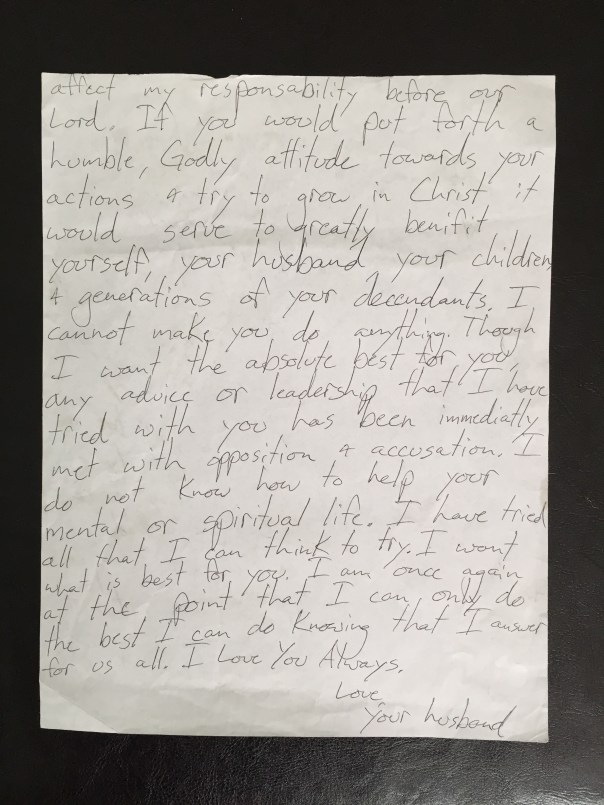 affect my responsability before our
Lord. If you would put forth a
humble, Godly attitude towards your
actions & try to grow in Christ it
would serve to greatly benifit
yourself, your husband, your children
& generations of your decendants. I
cannot make you do anything. Though
I want the absolute best for you,
any advice or leadership that I have
tried with you has been immediatly
met with opposition & accusation. I
do not know how to help your
mental or spiritual life. I have tried
all that I can think to try. I want
what is best for you. I am once again
at the point that I can only do
the best I can do knowing that I answer
for us all. I Love You Always.
Love,
Your husband